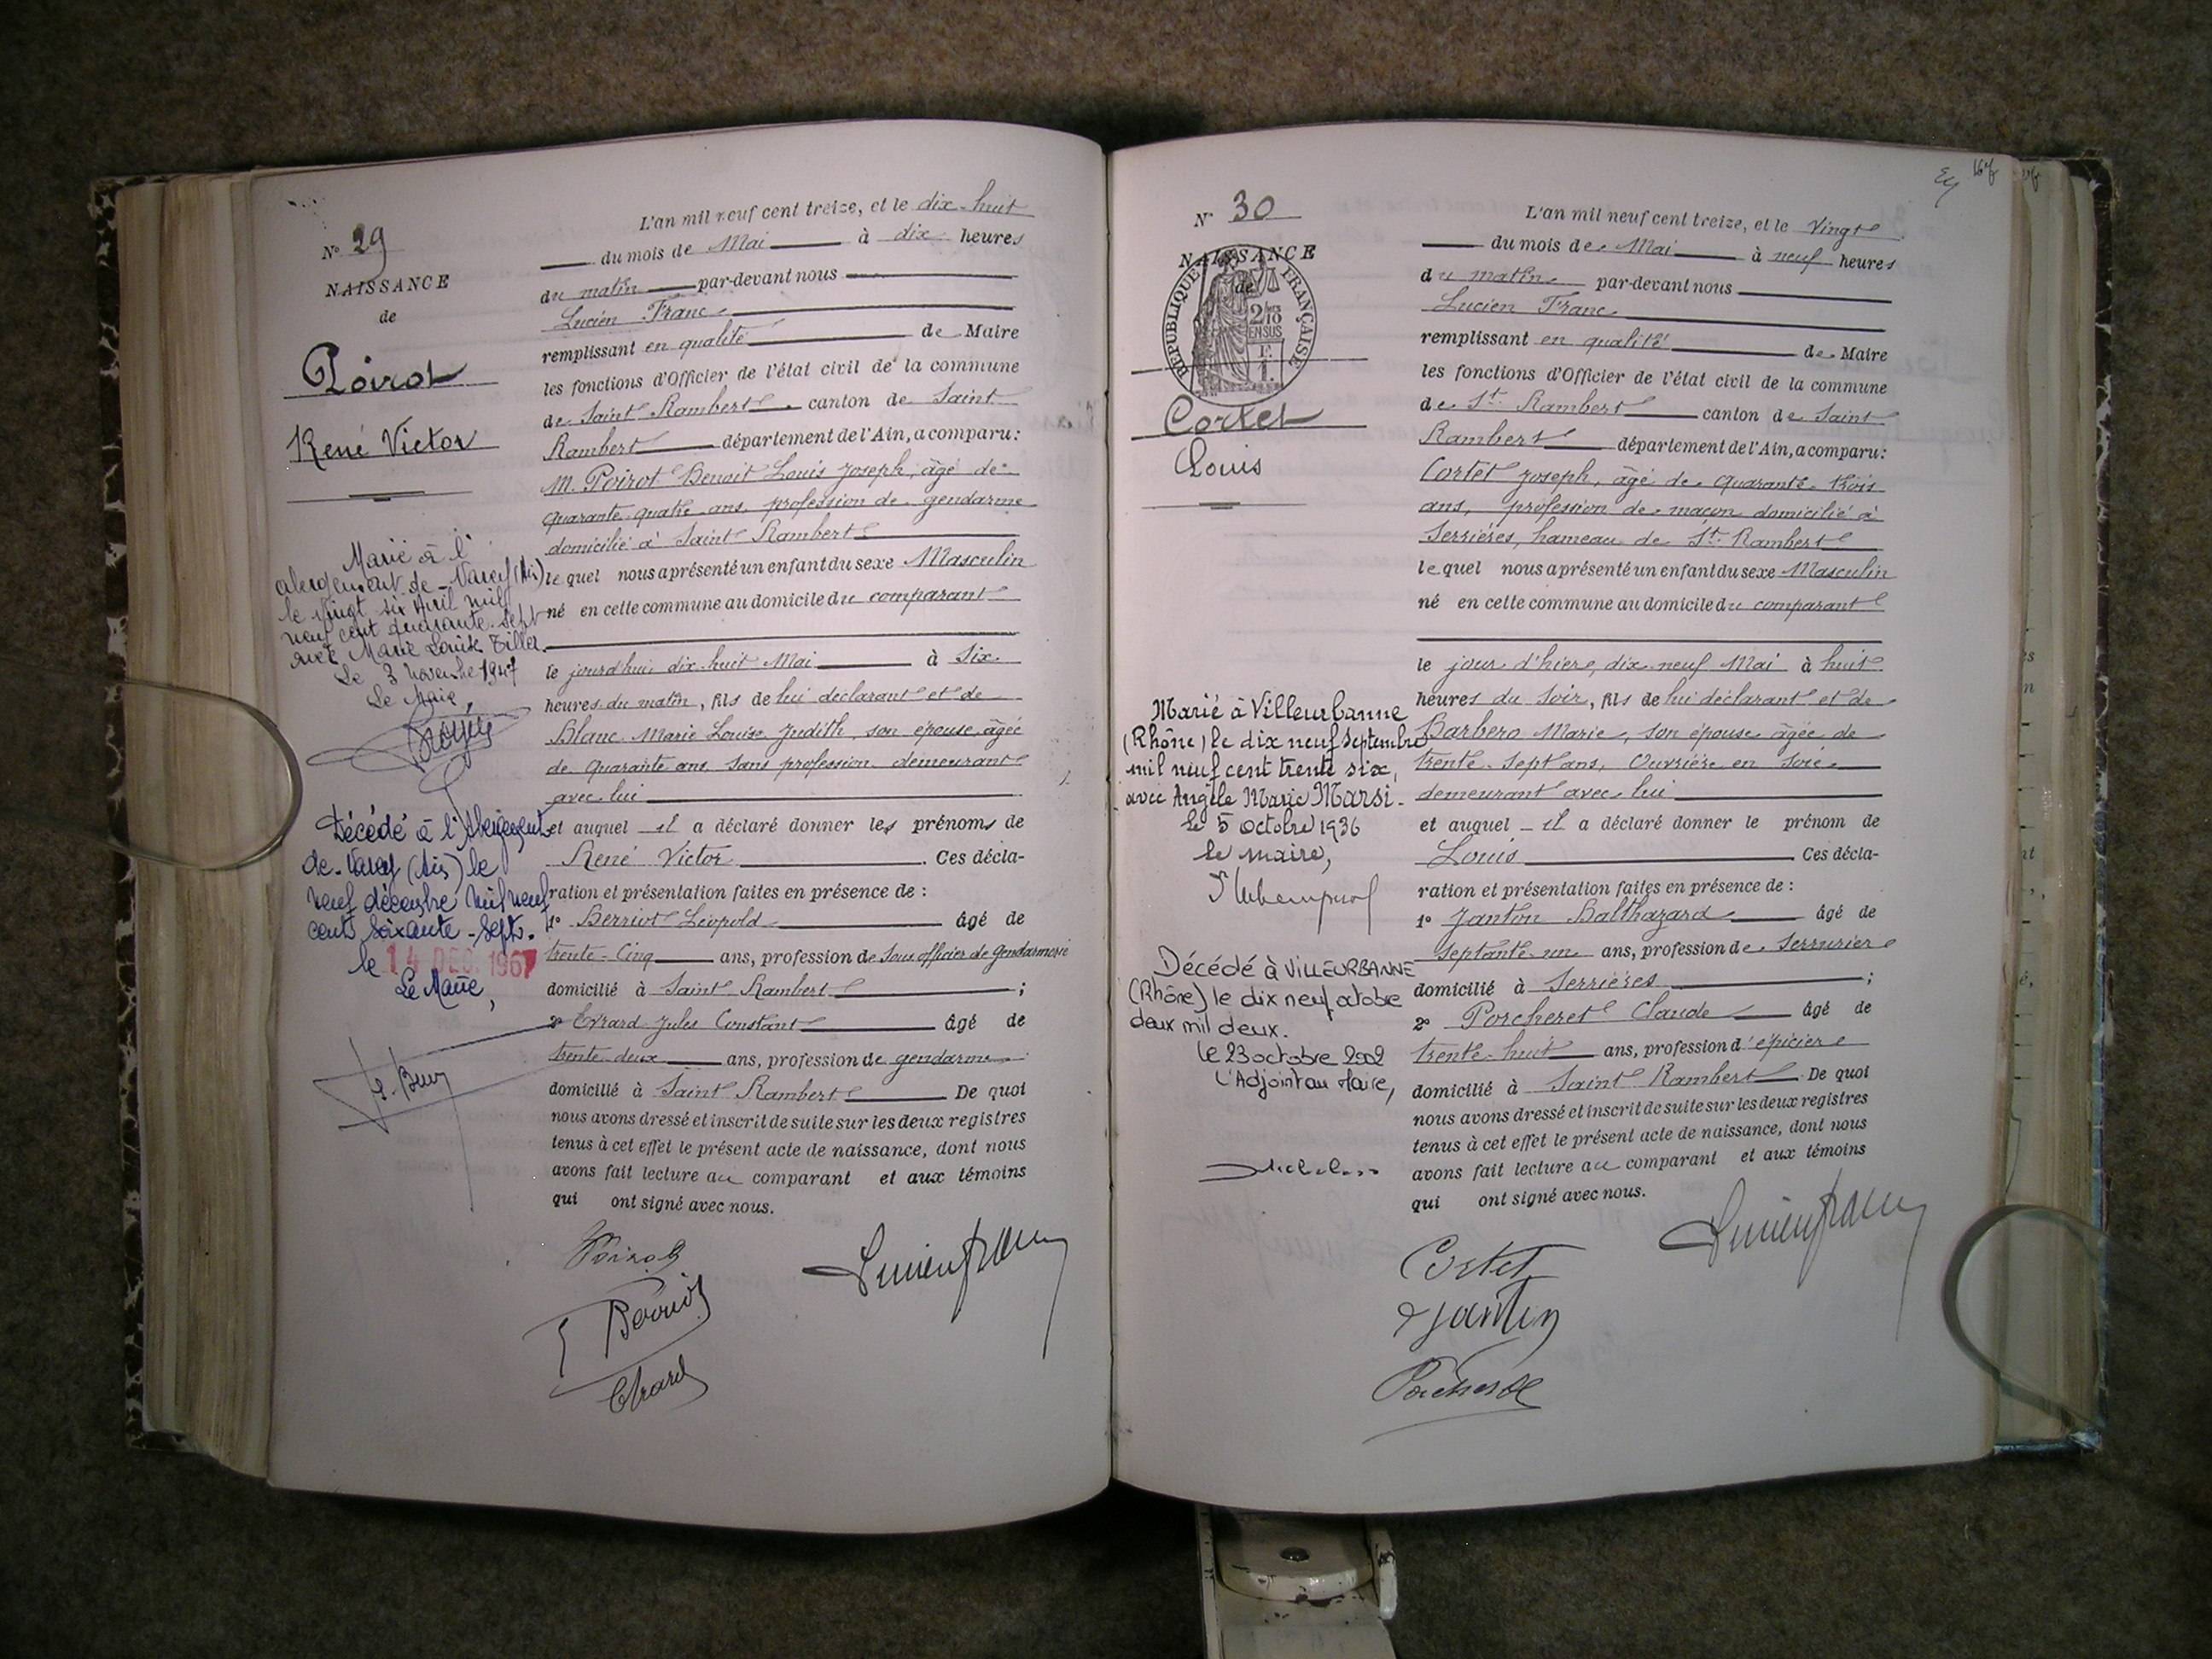 N° 29
NAISSANCE
de
Poirot
René Victor
Marié à l'
abergement de Varey (Ain)
le vingt six Avril mil
neuf cent quarante-sept
avec Marie Louise Tiller.
Le 3 novembre 1947
Le Maire,
Décédé à l'Abergement
de-Varey (Ain) le
neuf décembre mil neuf
cent soixante-sept.
le 14 DEC. 1967
Le Maire,
L'an mil neuf cent treize, et le dix-huit
du mois de Mai à dix heures
du matin par-devant nous
Lucien Franc
remplissant en qualité de Maire
les fonctions d'Officier de l'état civil de la commune
de Saint Rambert canton de Saint
Rambert département de l'Ain, a comparu:
M. Poirot Benoit Louis Joseph, âgé de
quarante-quatre ans, profession de gendarme
domicilié à Saint Rambert
lequel nous a présenté un enfant du sexe Masculin
né en cette commune au domicile du comparant
le jourd'hui dix-huit Mai à six
heures du matin, fils de lui déclarant et de
Blanc Marie Louise Judith, son épouse, âgée
de quarante ans, sans profession demeurant
avec lui
et auquel il a déclaré donner les prénoms de
René Victor Ces décla-
ration et présentation faites en présence de :
1° Berriot Léopold âgé de
trente-cinq ans, profession de sous officier de gendarmerie
domicilié à Saint Rambert ;
2° Evrard Jules Constant âgé de
trente-deux ans, profession de gendarme
domicilié à Saint Rambert De quoi
nous avons dressé et inscrit de suite sur les deux registres
tenus à cet effet le présent acte de naissance, dont nous
avons fait lecture au comparant et aux témoins
qui ont signé avec nous.
Poirot
Lucien Franc
Berriot
Evrard
N° 30
NAISSANCE
de
RÉPUBLIQUE FRANÇAISE
2/10
EN SUS
Cortet
Louis
Marié à Villeurbanne
(Rhône) le dix neuf septembre
mil neuf cent trente six,
avec Angèle Marie Marsi.
Le 5 octobre 1936
le maire,
Décédé à VILLEURBANNE
(Rhône) le dix neuf octobre
deux mil deux.
le 23 octobre 2002
L'Adjoint au Maire,
L'an mil neuf cent treize, et le Vingt
du mois de Mai à neuf heures
du matin par-devant nous
Lucien Franc
remplissant en qualité de Maire
les fonctions d'Officier de l'état civil de la commune
de St. Rambert canton de Saint
Rambert département de l'Ain, a comparu:
Cortet Joseph, âgé de quarante-trois
ans, profession de maçon domicilié à
Serrières, hameau de St. Rambert
lequel nous a présenté un enfant du sexe Masculin
né en cette commune au domicile du comparant
le jour d'hier, dix-neuf Mai à huit
heures du soir, fils de lui déclarant et de
Barbero Marie, son épouse âgée de
trente-sept ans, Ouvrière en soie
demeurant avec lui
et auquel il a déclaré donner le prénom de
Louis Ces décla-
ration et présentation faites en présence de :
1° Janton Balthazard âgé de
septante-un ans, profession de serrurier
domicilié à Serrières ;
2° Porcheret Claude âgé de
trente-huit ans, profession d'épicier
domicilié à Saint Rambert De quoi
nous avons dressé et inscrit de suite sur les deux registres
tenus à cet effet le présent acte de naissance, dont nous
avons fait lecture au comparant et aux témoins
qui ont signé avec nous.
Lucien Franc
Cortet
Janton
Porcheret